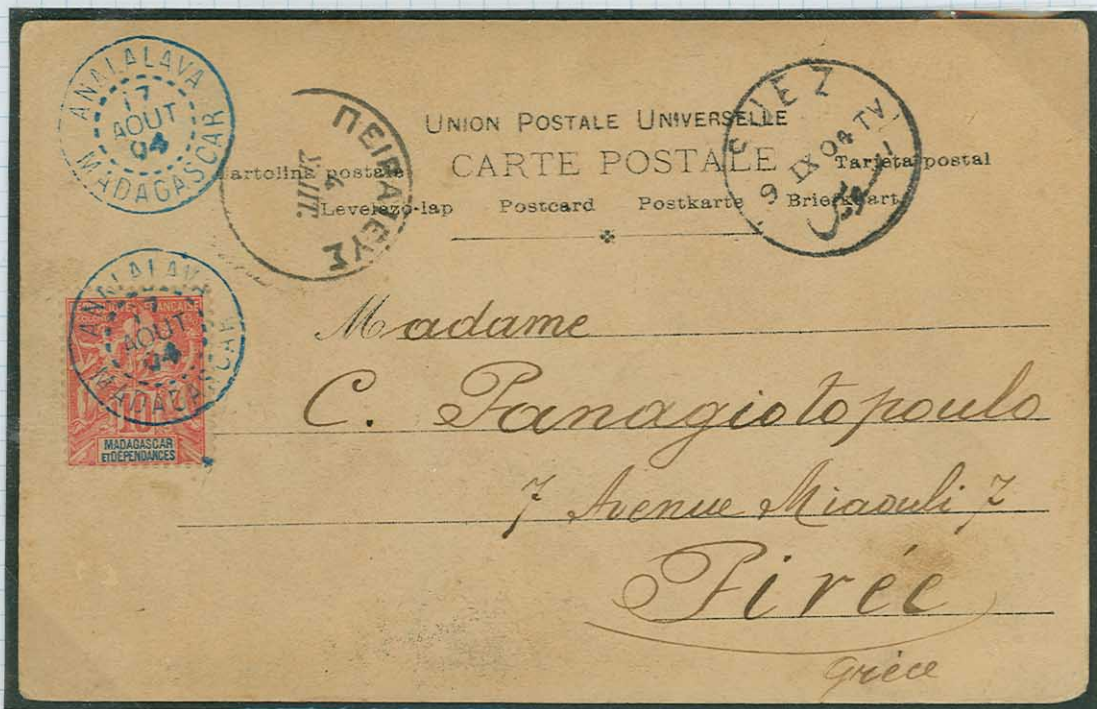 ANALALAVA
17
AOUT
04
MADAGASCAR
ΠΕΙΡΑΙΕΥΣ
SUEZ
9 IX 04 TV
السويس
UNION POSTALE UNIVERSELLE
CARTE POSTALE
Cartolina postale Tarjeta postal
Levelezo-lap Postcard Postkarte Briefkaart
ANALALAVA
17
AOUT
04
MADAGASCAR
FRANÇAISE
MADAGASCAR
ET DÉPENDANCES
Madame
C. Panagiotopoulo
7 Avenue Miaouli 7
Pirée
Grèce